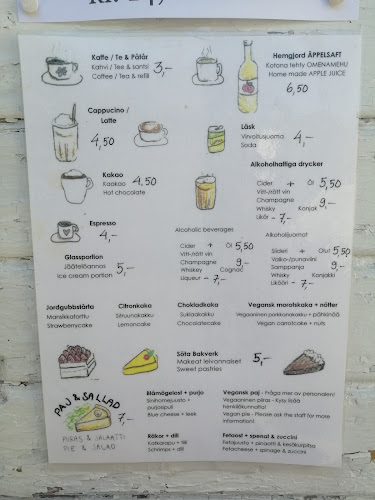 Kaffe / Te & Påtår
Kahvi / Tee & santsi
Coffee / Tea & refill
3,-
Hemgjord ÄPPELSAFT
Kotona tehty OMENAMEHU
Home made APPLE JUICE
6,50
Cappucino /
Latte
4,50
Läsk
Virvoitusjuoma
Soda
4,-
Kakao
Kaakao
Hot chocolate
4,50
Alkoholhaltiga drycker
Cider + Öl 5,50
Vitt-/rött vin
Champagne 9,-
Whisky Konjak
Likör - 7,-
Espresso
4,-
Glassportion
Jäätelöannos
Ice cream portion
5,-
Alcoholic beverages
Cider + Öl 5,50
Vitt-/rött vin
Champagne 9,-
Whiskey Cognac
Liqueur - 7,-
Alkoholijuomat
Siideri + Olut 5,50
Valko-/punaviini
Samppanja 9,-
Whisky Konjakki
Likööri - 7,-
Jordgubbstårta
Mansikkatorttu
Strawberrycake
Citronkaka
Sitruunakakku
Lemoncake
Chokladkaka
Suklaakakku
Chocolatecake
Vegansk morotskaka + nötter
Vegaaninen porkkanakakku + pähkinää
Vegan carrotcake + nuts
Söta Bakverk
Makeat leivonnaiset
Sweet pastries
5,-
PAJ & SALLAD
7,-
PIIRAS & SALAATTI
PIE & SALAD
Blåmögelost + purjo
Sinihomejuusto +
purjosipuli
Blue cheese + leek
Vegansk paj - Fråga mer av personalen!
Vegaaninen piiras - Kysy lisää
henkilökunnalta!
Vegan pie - Please ask the staff for more
information!
Räkor + dill
Katkarapu + tilli
Schrimps + dill
Fetaost + spenat & zuccini
Fetajuusto + pinaatti & kesäkurpitsa
Fetacheese + spinage & zuccini